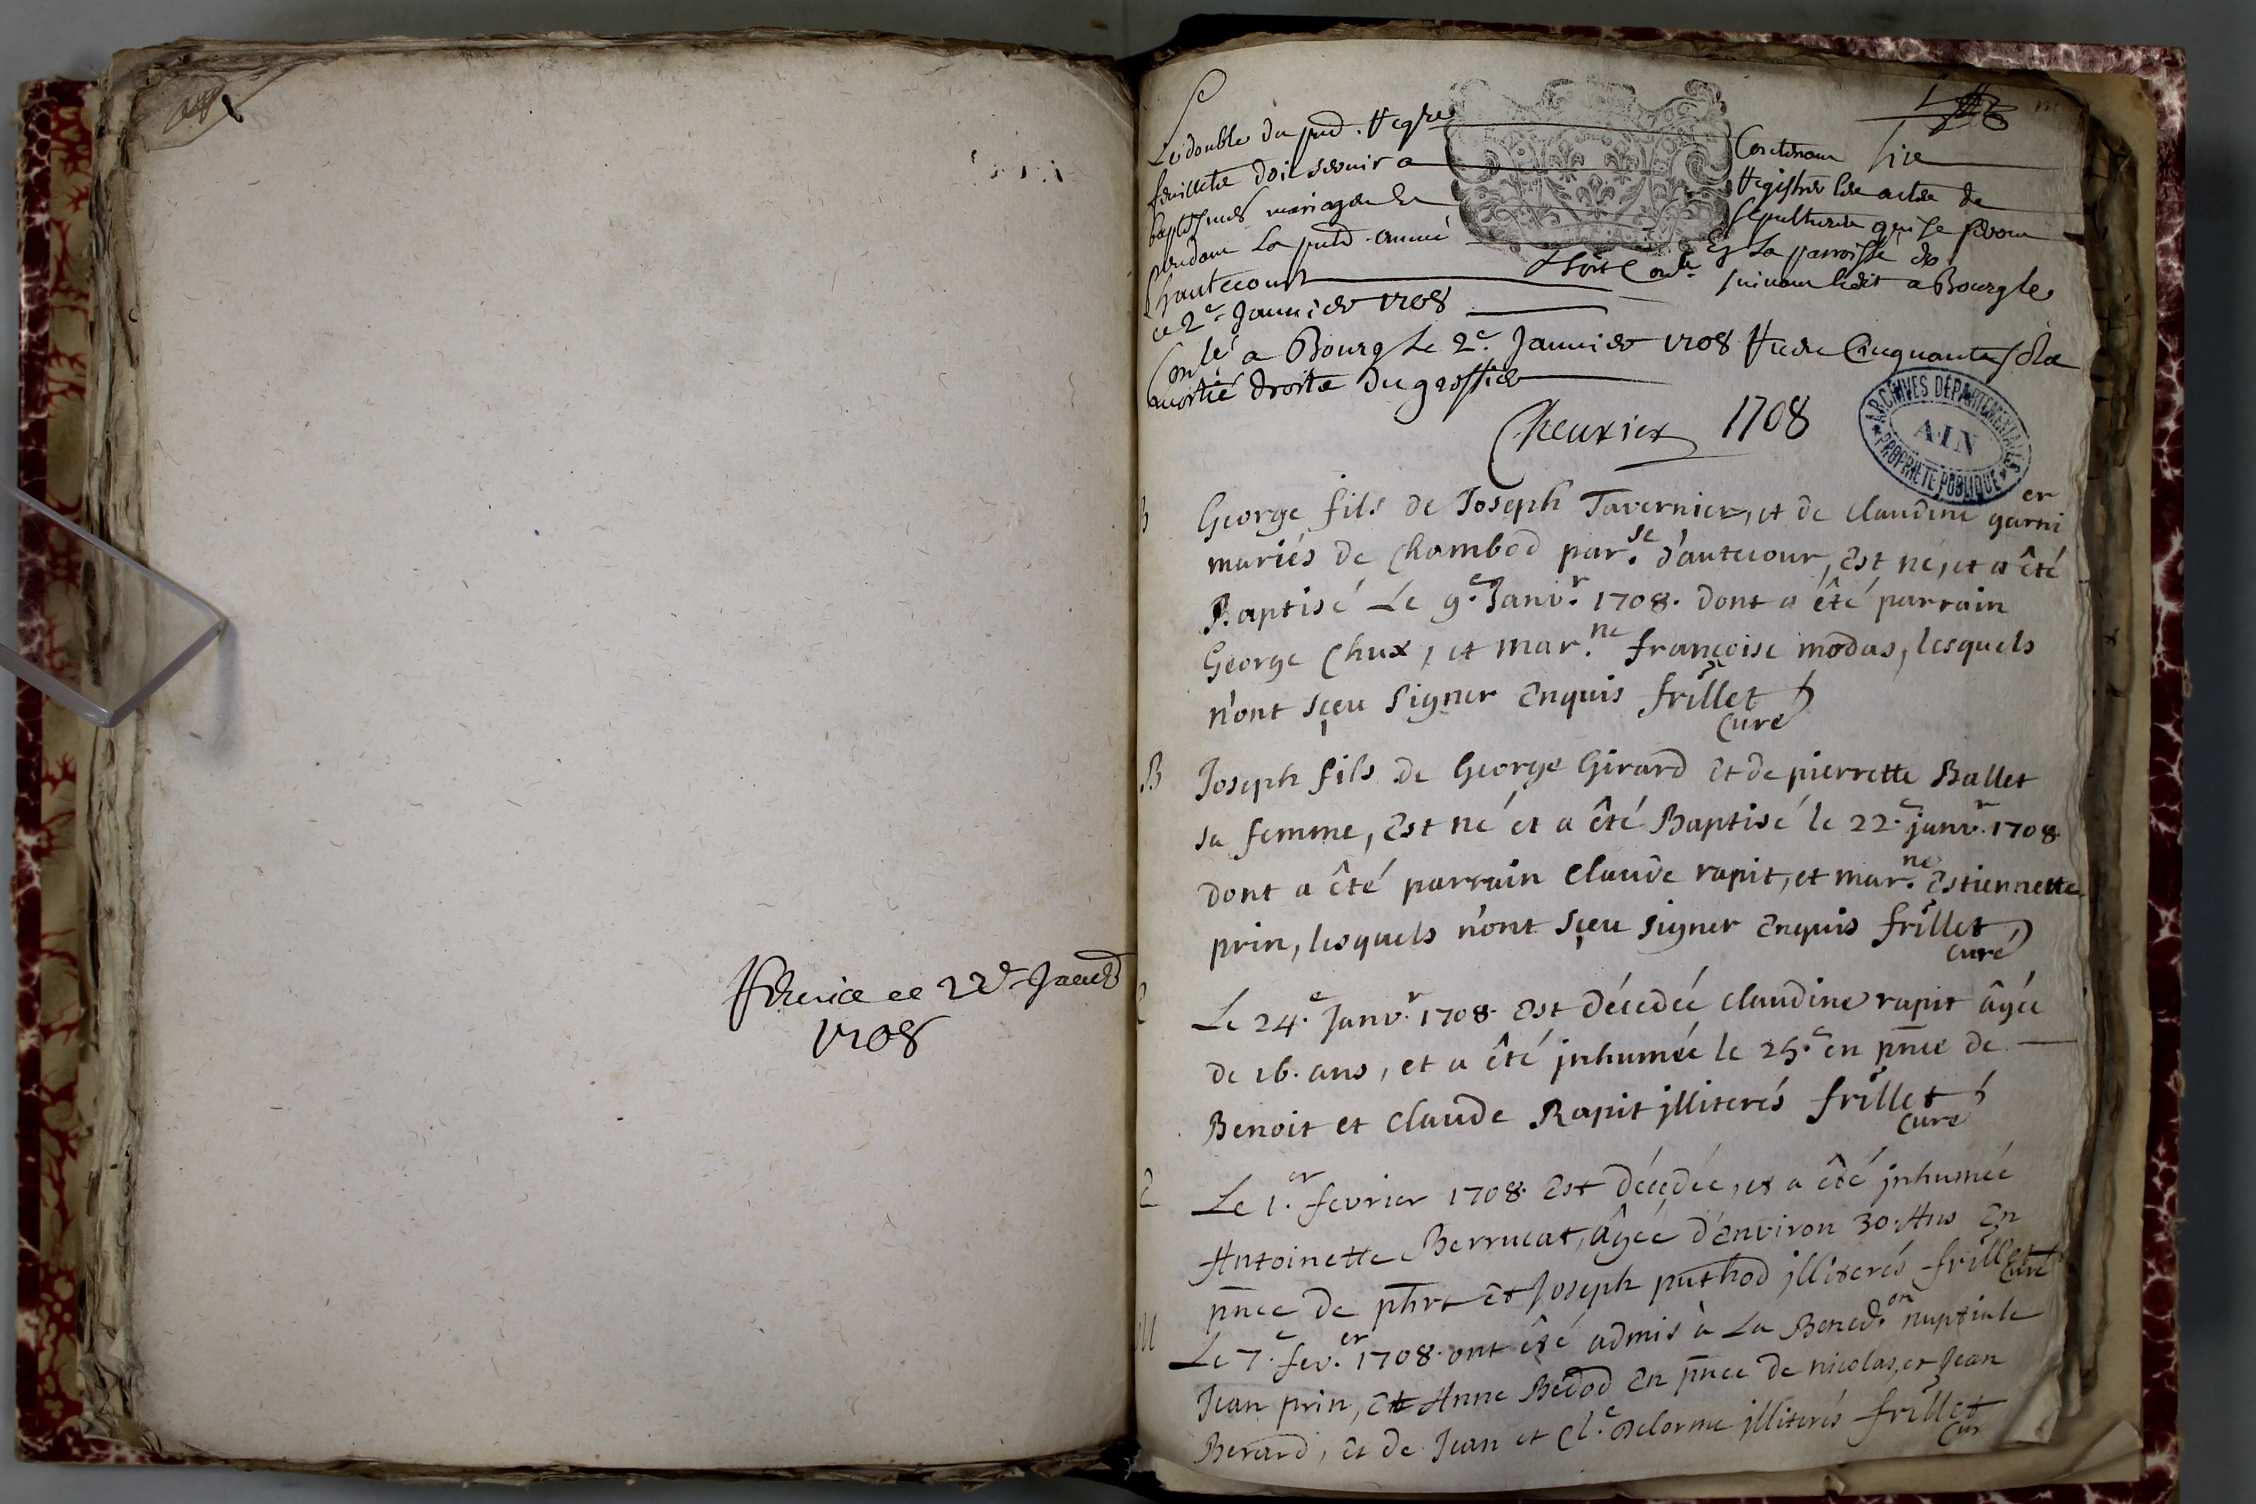 ce 22e Janv
1708
Le double du pnt. Regre Contenant six
feuillets doit servir a Registrer les actes de
baptesmes mariages et sepultures qui se feront
pendant la pnte. année En la parroisse de
hautecourt suivant ledit a Bourg le
ce 2e. Janvier 1708
Conlé a Bourg le 2e. Janvier 1708 Cinquante sols
moitié droits du greffier
Cheuvrier 1708
ARCHIVES DÉPARTEMENTALES
AIN
PROPRIÉTÉ PUBLIQUE
B George fils de Joseph Tavernier, et de claudine garnier
mariés de Chambod par.se d'autecour, Est né, et a êté
Baptisé Le 9.e Janv.r 1708. dont a êté parrain
George Chux, et mar.ne françoise modas, lesquels
n'ont sçeu signer Enquis frillet
curé
B Joseph fils de George Girard Et de pierrette Ballet
sa femme, Est né et a êté Baptisé le 22.e janv.r 1708.
dont a êté parrain Claude rapit, et mar.ne Estiennette
prin, lesquels n'ont sçeu signer Enquis frillet
curé
E Le 24.e Janv.r 1708. Est décedée claudine rapit âgée
de 16. ans, et a êté jnhumée le 25.e en pnce de
Benoit et Claude Rapit jlliterés frillet
curé
E Le 1.er fevrier 1708. Est décedée, et a êté jnhumée
Antoinette Berrucat, âgée d'Environ 30. Ans En
pnce de phrt Et Joseph puthod jlliterés frillet
curé
M Le 7.e fev.er 1708. ont êté admis à La Bened.on nuptiale
Jean prin, Et Anne Bedod En pnce de nicolas, et Jean
Berard, Et de Jean et Cl.e Delorme jlliterés frillet
cur